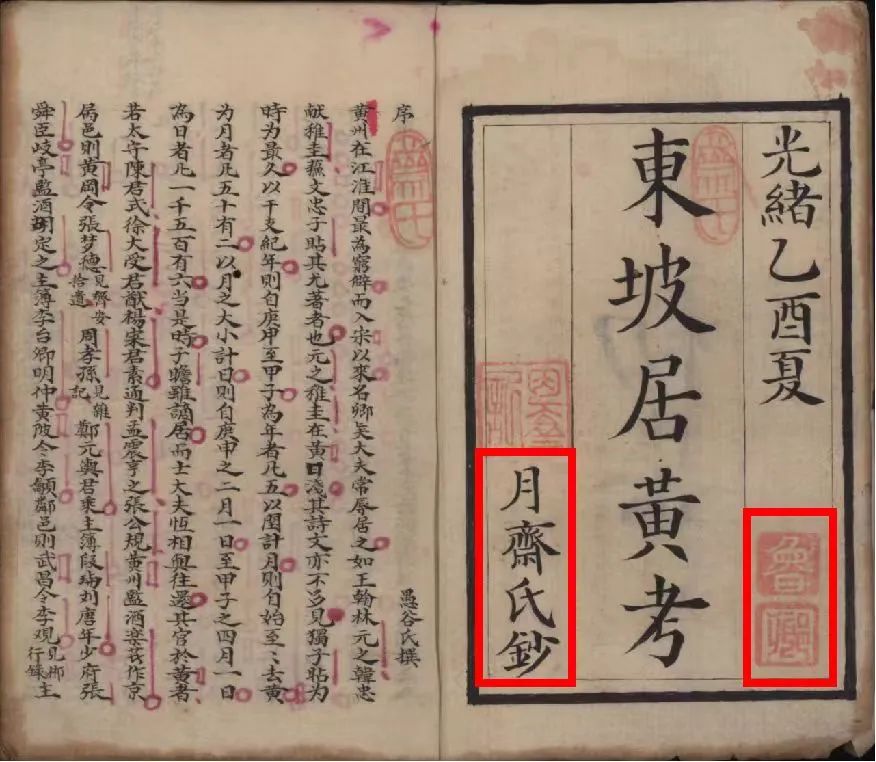 光緒乙酉夏
魯卿
東坡居黃考
月齋氏鈔
序
愚谷氏撰
黃州在江淮間最為窮僻而入宋以來名卿矣大夫常辱居之如王翰林元之韓忠
献稚圭蘇文忠子贴其尤著者也元之稚圭在黃日淺其詩文亦不多見獨子贴为
時为最久以干支紀年則自庚申至甲子為年者凡五以閏計月則自始至〻去黃
为月者凡五十有二以月之大小計日則自庚申之二月一日至甲子之四月一日
為日者凡一千五百有六当是時子瞻雖謫居而士大夫恆相與往還其官於黃者
若太守陳君式徐大受君猷楊寀君素通判孟震亨之張公規黃州監酒楽作京
邑則黃岡令張梦德見齊安拾遺周孝孫見雜記鄭元輿君乘主簿段刘唐年少府張
舜臣岐亭監酒胡定之主簿李台卿明仲黃陂令李顒鄰邑則武昌令李观見行録主